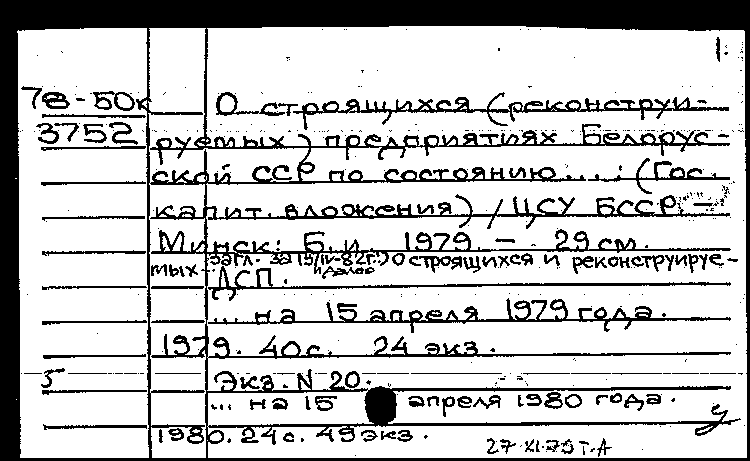 1.
78-50к О строящихся (реконструи-
3752 руемых) предприятиях Белорус-
ской ССР по состоянию...: (Гос.
капит. вложения) / ЦСУ БССР. -
Минск: Б.и. 1979. - 29 см.
загл. за 15/IV-82г.: О строящихся и реконструируе-
мых и далее
ДСП.
... на 15 апреля 1979 года.
1979. 40 с. 24 экз.
5 Экз. N 20.
... на 15 апреля 1980 года.
1980. 24 с. 49 экз.
27 XI.79 г.